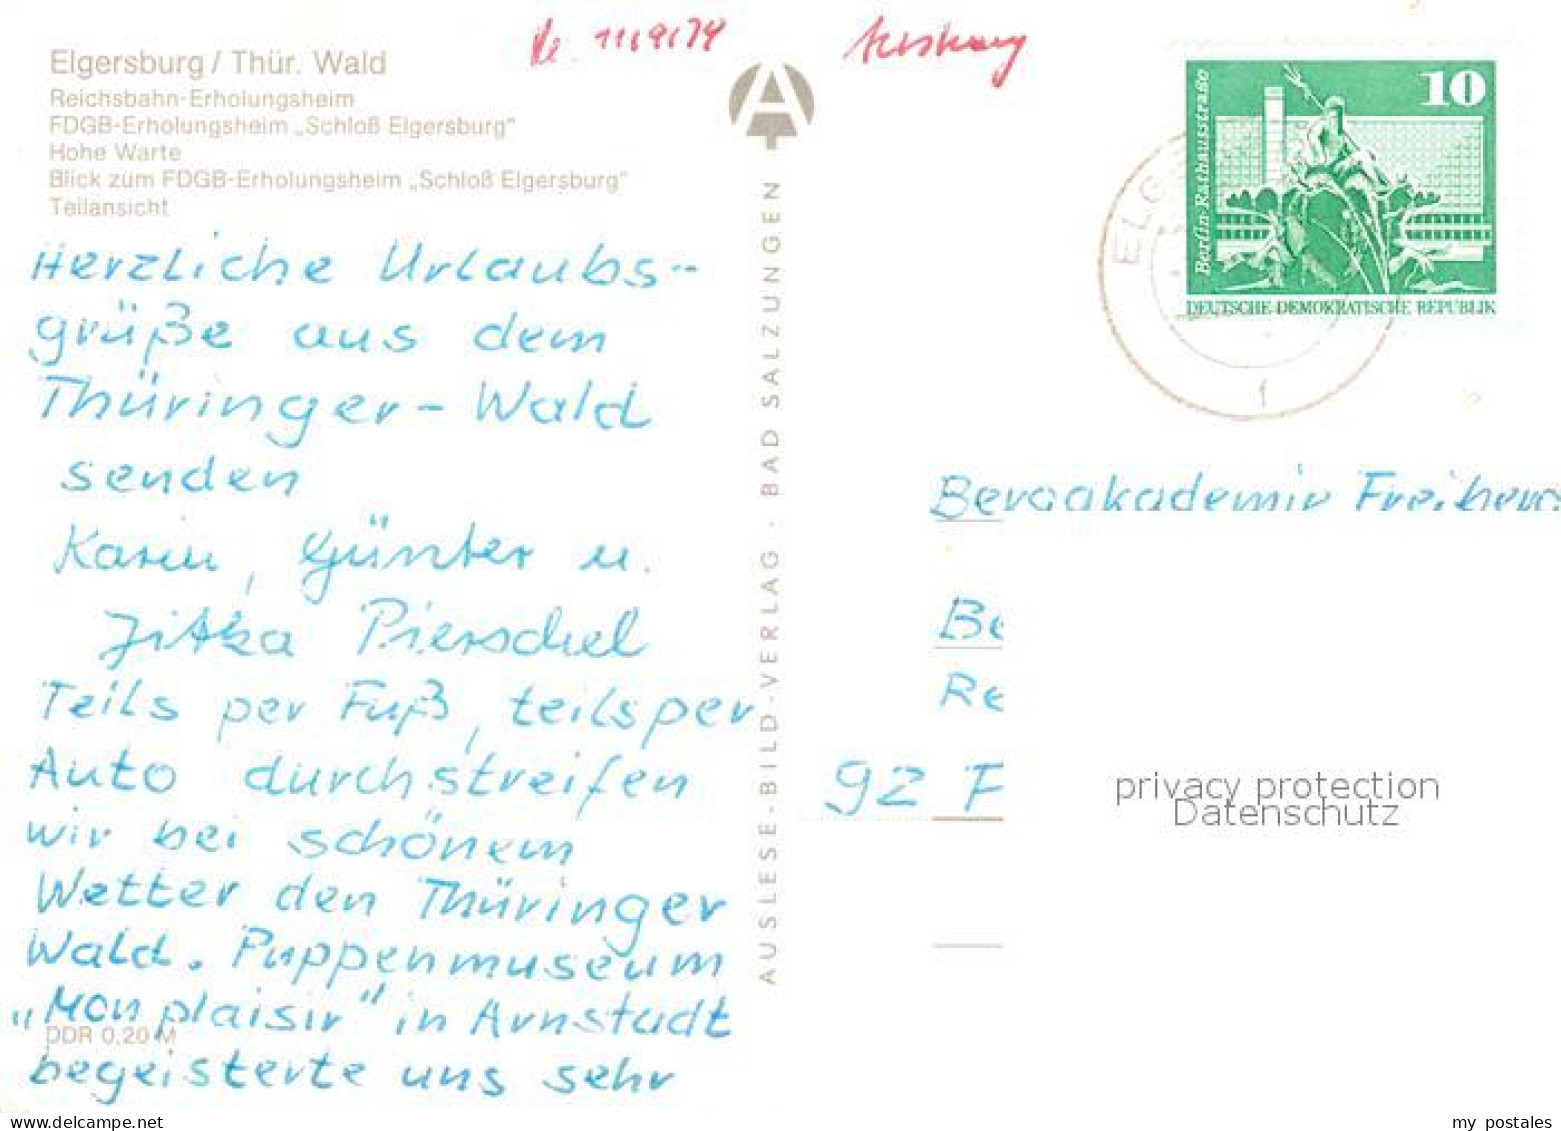 Elgersburg / Thür. Wald
Reichsbahn-Erholungsheim
FDGB-Erholungsheim „Schloß Elgersburg"
Hohe Warte
Blick zum FDGB-Erholungsheim „Schloß Elgersburg"
Teilansicht
Herzliche Urlaubs-
grüße aus dem
Thüringer-Wald
senden
Karin, Günter u.
Jitka Pierschel
Teils per Fuß, teils per
Auto durchstreifen
wir bei schönem
Wetter den Thüringer
Wald. Puppenmuseum
„Mon plaisir" in Arnstadt
begeisterte uns sehr
DDR 0,20 M
AUSLESE-BILD-VERLAG · BAD SALZUNGEN
10
Berlin-Rathausstraße
DEUTSCHE DEMOKRATISCHE REPUBLIK
ELG
1
Bergakademie Freiberg
Be
Re
92 F
privacy protection
Datenschutz
my postales